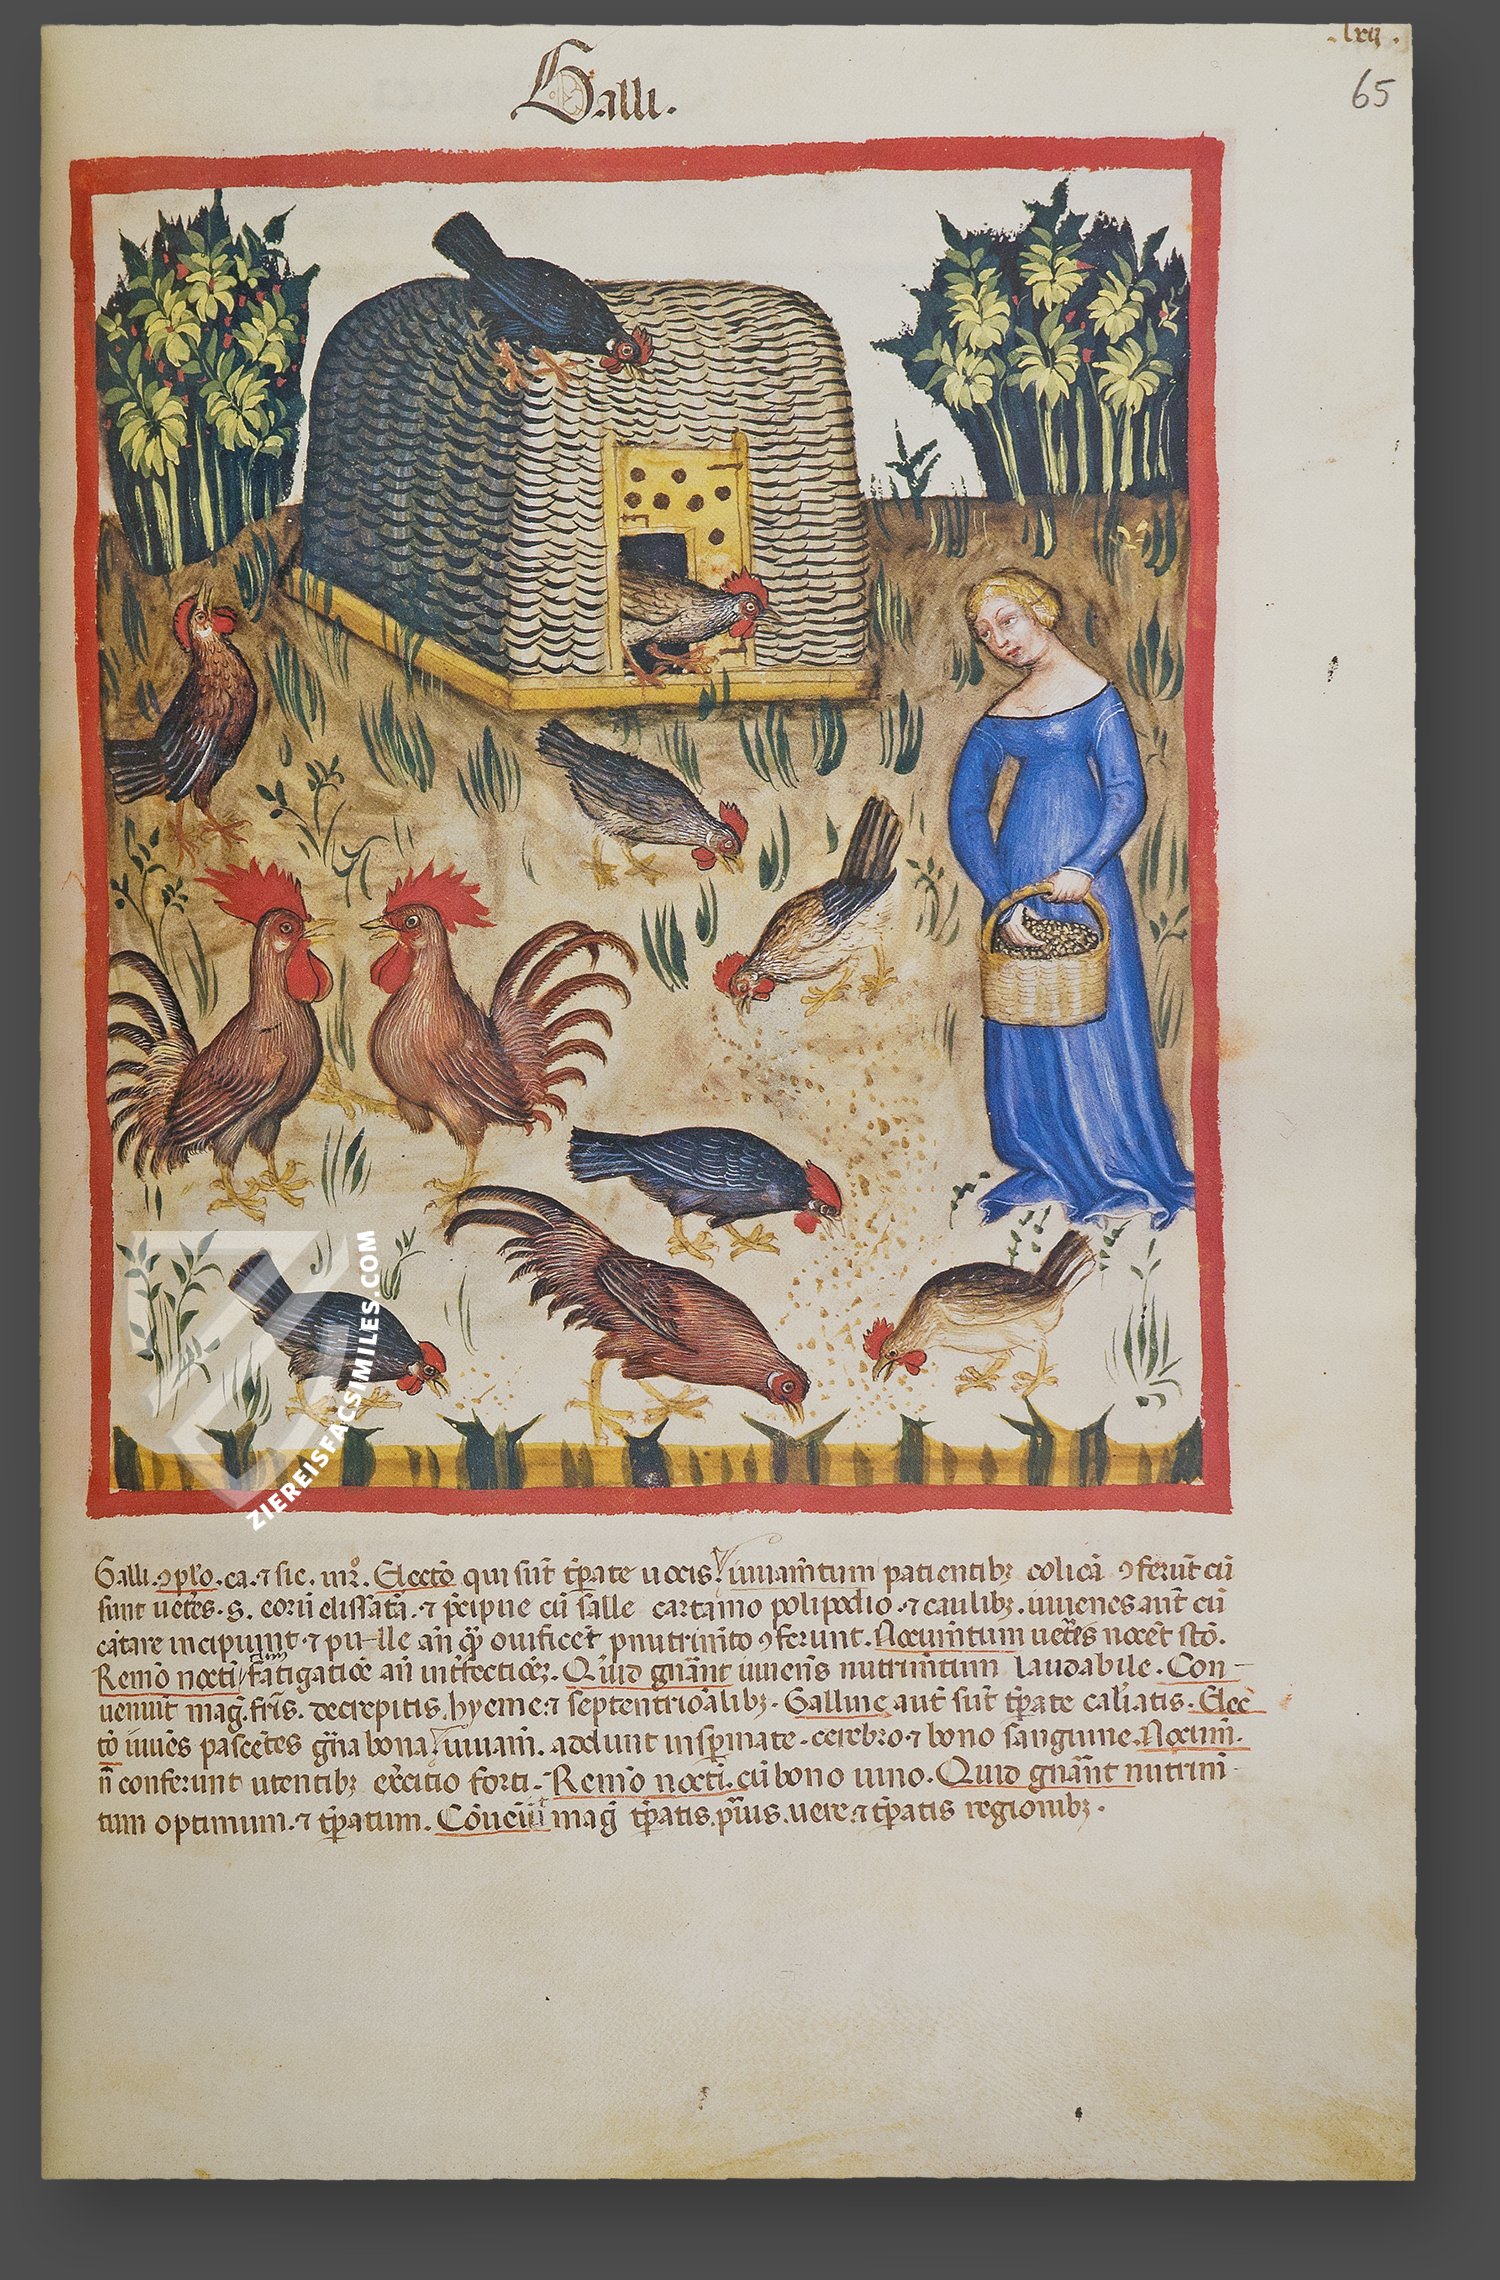 .lxij.
65
Galli.
ZIEREISFACSIMILES.COM
Galli. ɔplo. ca. ⁊ sic. in 2°. Electō qui sūt tꝑate uocis. iuuamtum patientibꝫ colicā ɔferūt cū
sunt uetēs. S. eorū elissata. ⁊ p̄cipue cū salle cartamo polipodio. ⁊ caulibꝫ. iuuenes aūt cū
cātare incipiunt ⁊ pulle an̄ ovificet pnutrimto ɔferunt. Nocumtum uetēs nocēt sto.
Remō nocti fatigatiōe an̄ int̄fectiōeꝫ. Quid gnānt iuuenis nutrimtum laudabile. Con-
ueniūt mag. fris. decrepitis, hyeme. ⁊ septentrionalibꝫ. Galline aut sūt tꝑate cal̄iatis. Elec
tō iuuēs pascētes gna bona, iuuam. addunt in sꝑmate. cerebro. ⁊ bono sanguine. Nocum.
n̄ conferunt utentibꝫ ex̄citio forti. Remō nocti. cū bono uino. Quid gnānt nutrim-
tum optimum. ⁊ tꝑatum. Cōueniūt mag tꝑatis. p̄uis. uere. ⁊ tꝑatis regionibꝫ.